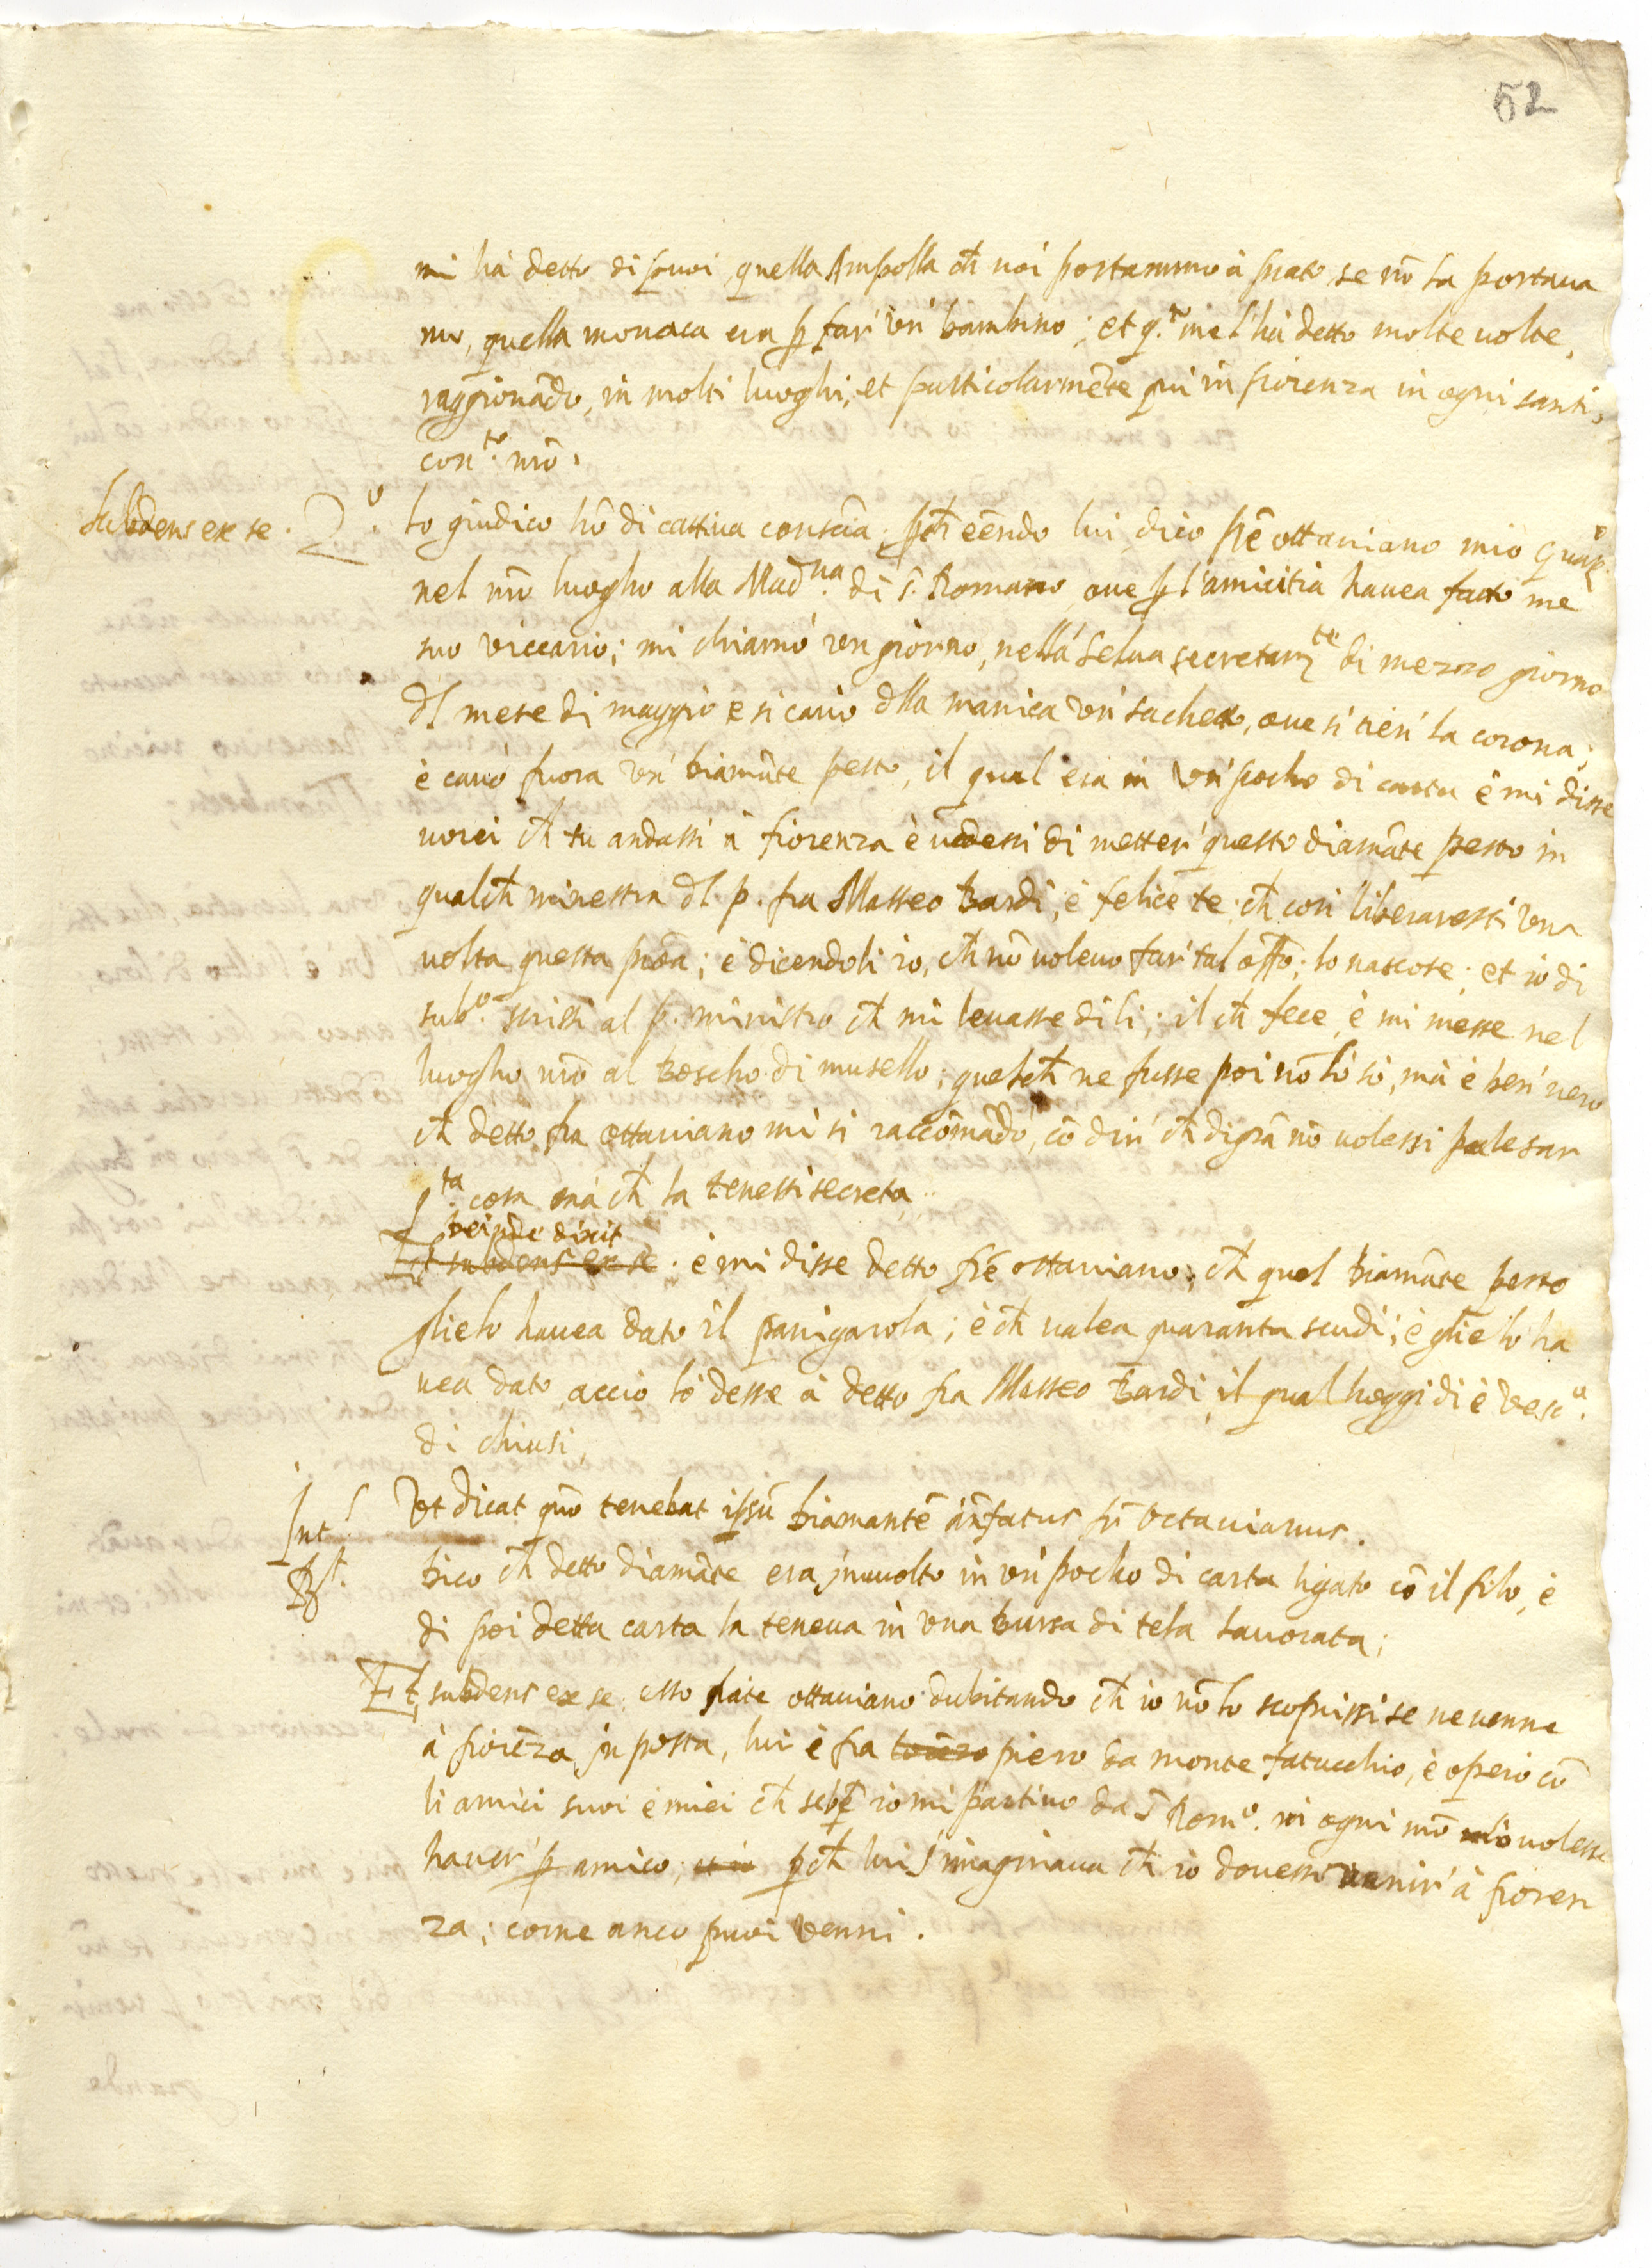 52
mi hà detto di puoi, quella Ampolla ch̃ noi portammo à prato se nõ la portaua
no, quella monaca era p̱ far' vn' bambino; et q.ᵒ me l'hà detto molte uolte,
raggionãdo, in molti luoghi, et particolarmẽte qui in fiorenza in ogni santi,
con.ᵗᵒ nrõ.
Subdens ex se. 2.º lo giudico hõ di cattiua consciã, p̱ch̃ eẽndo lui, dico frẽ ottauiano mio
nel nrõ luogho alla Mad.ⁿᵃ di S. Romano, oue p̱ l'amicitia hauea fatto me
suo viccario; mi chiamò vn giorno, nella selua secretam.ᵗᵉ di mezzo giorno
dl mese di maggio e si cauò dlla manica vn' sachetto, oue si tien' la corona;
è cauò fuora vn' diamãte pesto, il qual era in vn' pocho di carta è mi disse
uorei ch̃ tu andassi à fiorenza è uedessi di metter' questo diamãte pesto in
qualch̃ minestra dl p. fra Matteo Bardi, è felice te, ch̃ cosi liberaressi vna
uolta questa proã; è dicendoli io, ch̃ nõ uoleuo far' tal effõ; lo nascose; et io di
sub.º scrissi al p. ministro ch̃ mi leuasse di li; il ch̃ fece, è mi messe nel
luogho nrõ al Boscho di musello; quelch̃ ne fusse poi nõ lo sò, mà è ben' uero
ch̃ detto fra ottauiano mi si raccõmãdò, cõ dir' ch̃ di grã nõ uolessi palesar
q.ᵗᵃ cosa mà ch̃ la tenessi secreta,
Deinde dixit
Et subdens ex se. è mi disse detto frẽ ottauiano, ch̃ quel diamãte pesto
glielo hauea dato il panigarola; è ch̃ ualea quaranta scudi; è glie lò ha
uea dato, acciò lò desse à detto fra Matteo Bardi, il qual hoggidi è Vesc.º
di chiusi,
Int.ˢ Vt dicat quõ tenebat ipsũ diamantẽ ãnfatus fr̃ Octauianus.
R.ᵗ Dico ch̃ detto diamãte era inuolto in vn' pocho di carta ligato cõ il filo, è
di poi detta carta la teneua in vna bursa di tela lauorata;
Et subdens ex se. esso frate ottauiano dubitando ch̃ io nõ lo scoprissi se ne uenne
à fiorẽza in posta, lui è fra piero da monte fatucchio, è operò cõ
li amici suoi è miei ch̃ sebẽ io mi partiuo da S. Rom.º in ogni mõ uolesse
hauer' p̱ amico; p̱ch̃ lui s'imaginaua ch̃ io douessi uenir' à fioren
za; come anco puoi venni.